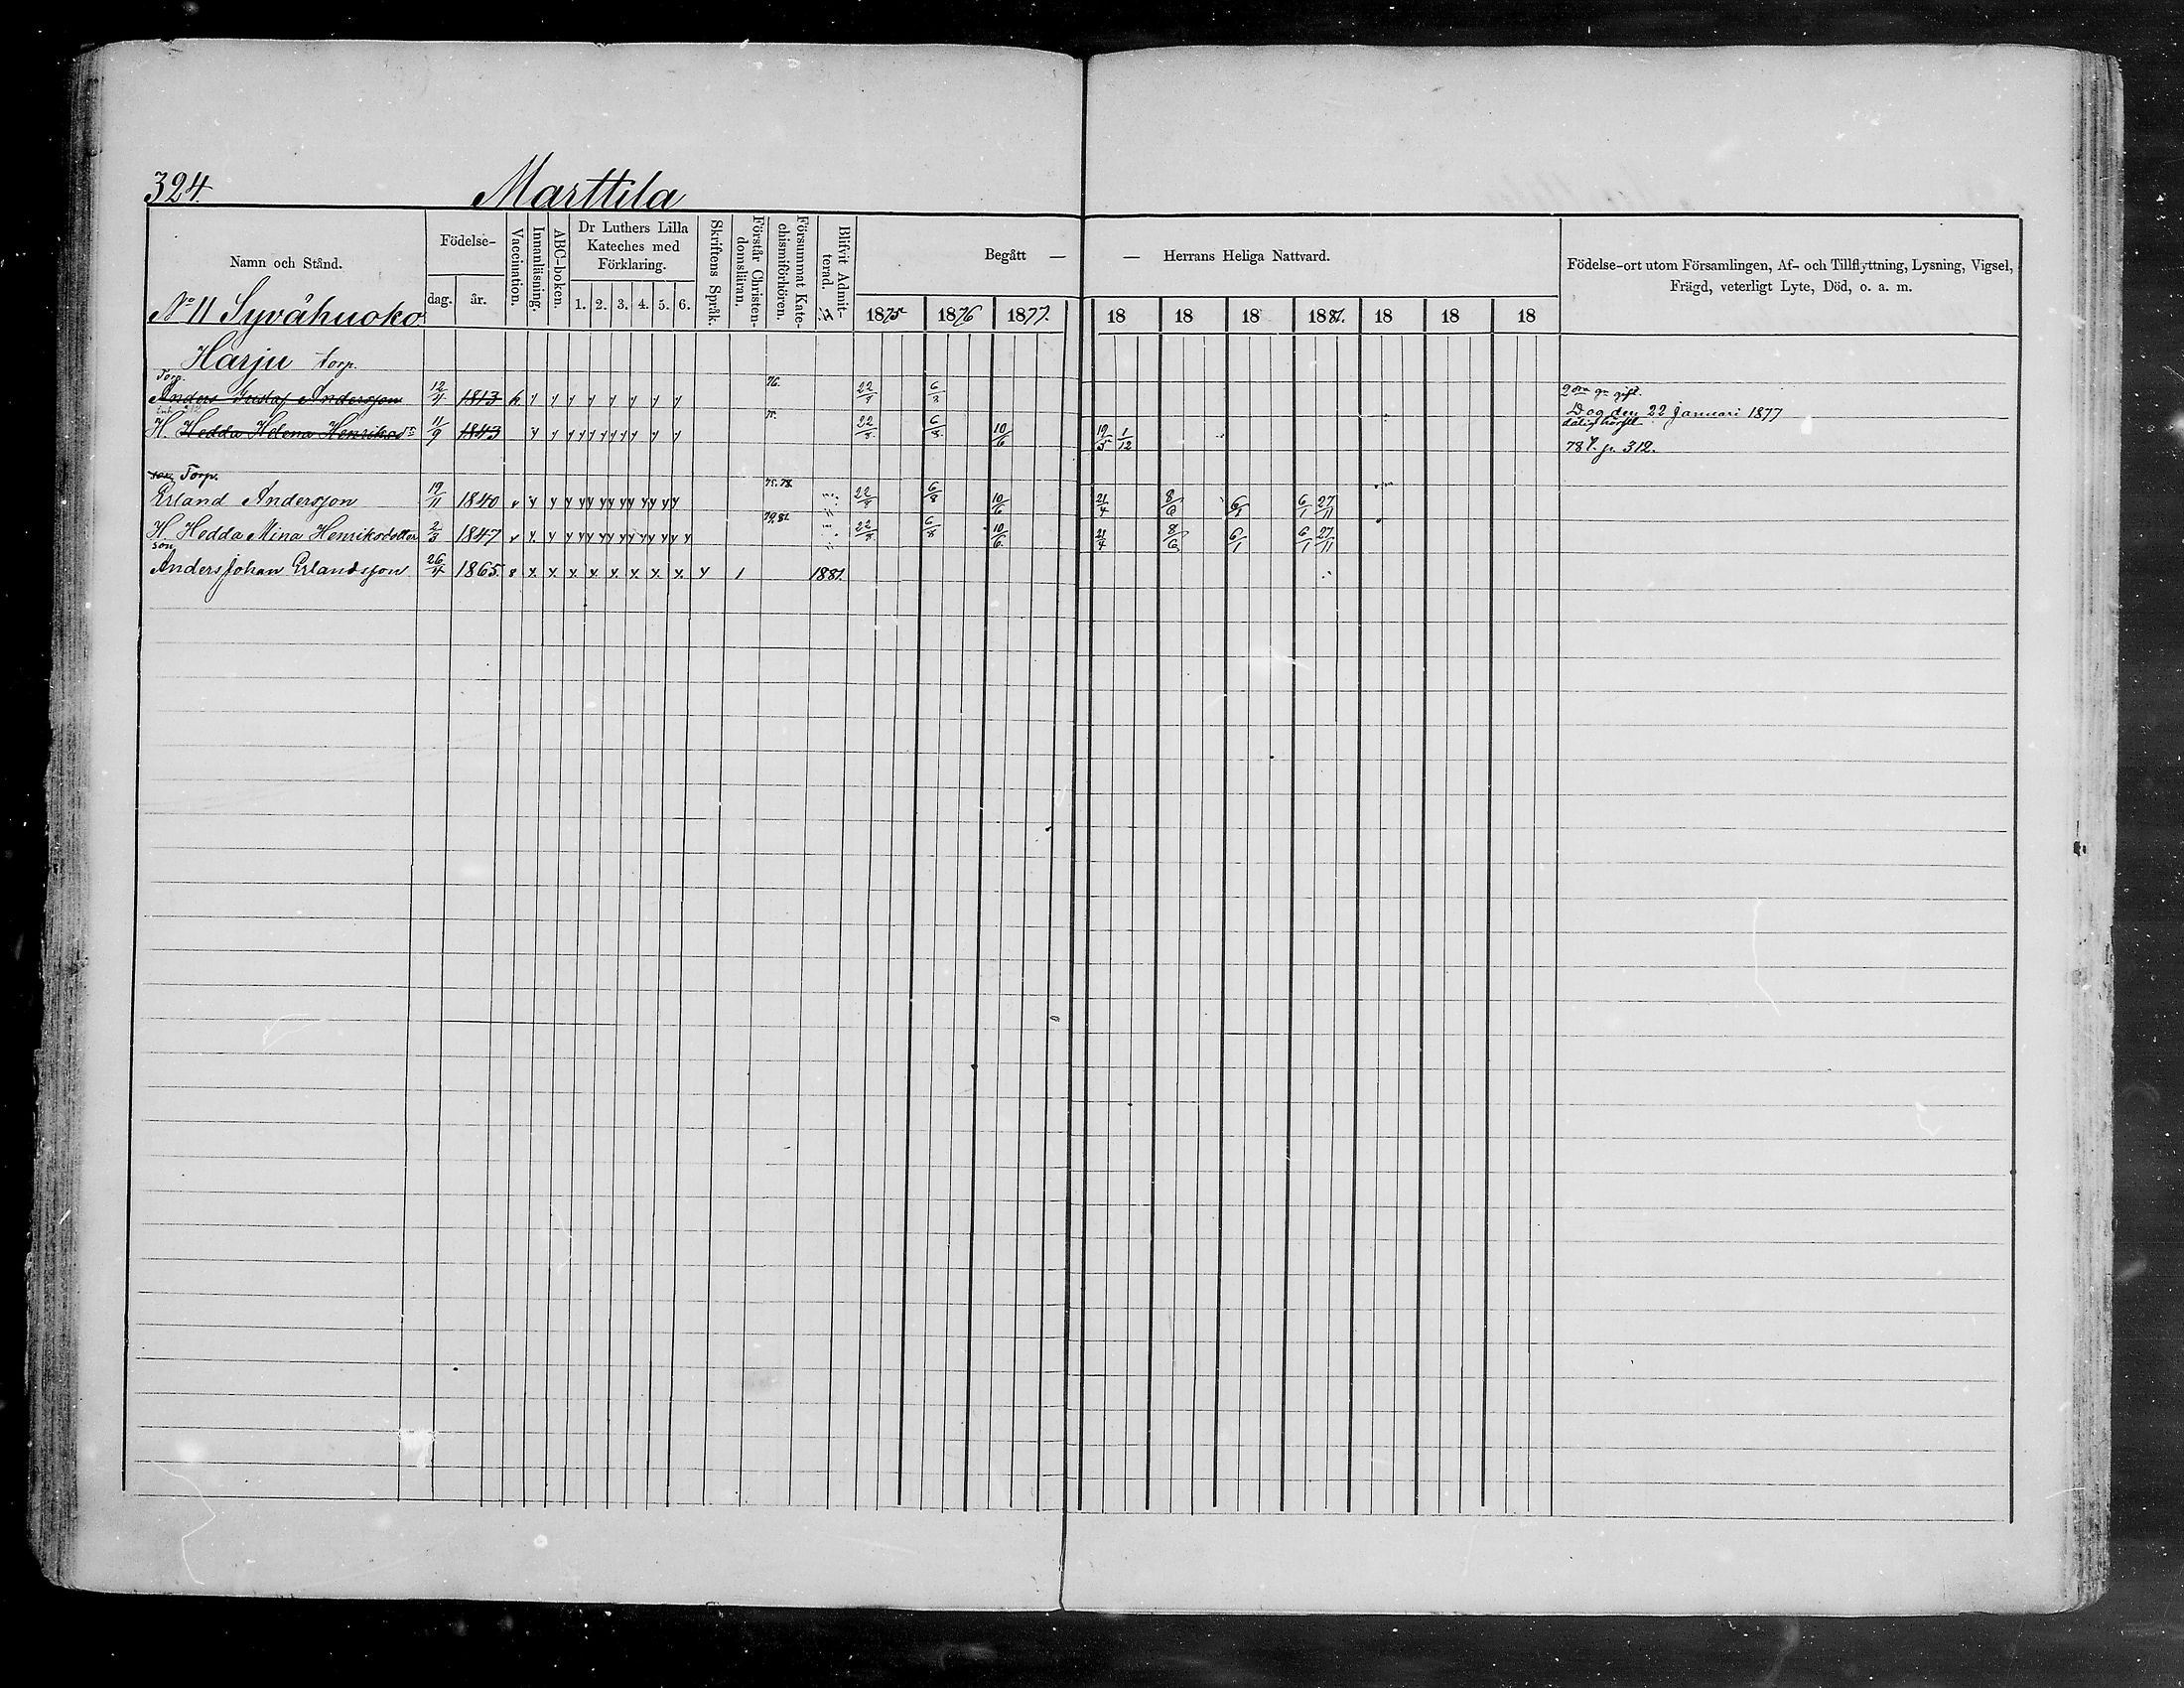 324.
Marttila
Namn och Stånd.
Födelse-
dag.
år.
Vaccination.
Innanläsning.
ABC-boken.
Dr Luthers Lilla
Kateches med
Förklaring.
1. 2. 3. 4. 5. 6.
Skriftens Språk.
Förstår Christen-
domsläran.
Försummat Kate-
chismiförhören.
Blifvit Admit-
terad.
Begått —
— Herrans Heliga Nattvard.
Födelse-ort utom Församlingen, Af- och Tillflyttning, Lysning, Vigsel,
Frägd, veterligt Lyte, Död, o. a. m.
1875 1876 1877. 18 18 18 1881. 18 18 18
No 11 Syvähuoko
Harju torp.
Torp.
Anders Gustaf Andersson 12/4 1813 76. 22/8 6/8 2dra gn gift.
Dog den 22 Januari 1877
H. Hedda Helena Henriksdr 11/9 1843 75. 22/8 6/8 10/6 19/5 1/12 dålig hörsel
78 p. 312.
son Torp.
Erland Andersson 19/11 1840 75.78. 22/8 6/8 10/6 21/4 8/6 6/1 6/1 27/11
H Hedda Mina Henriksdotter 2/3 1847 79.81. 22/8 6/8 10/6 21/4 8/6 6/1 6/1 27/11
son
Anders Johan Erlandsson 26/4 1865. 1 1881.